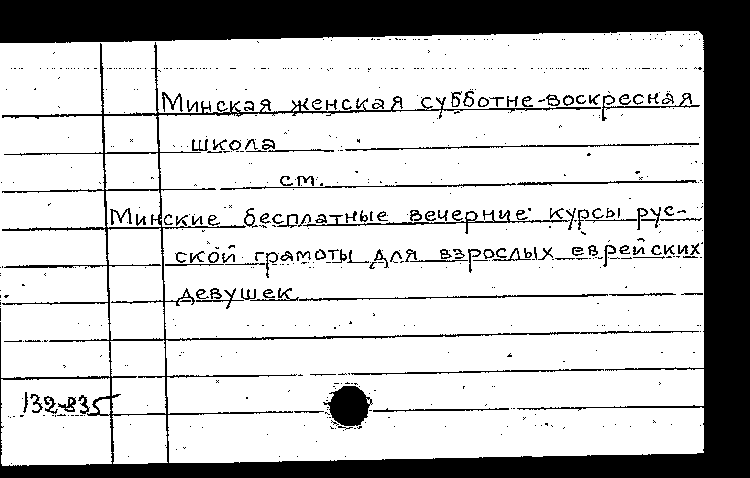 Минская женская субботне-воскресная
школа
ст.
Минские бесплатные вечерние курсы рус-
ской грамоты для взрослых еврейских
девушек
132-835